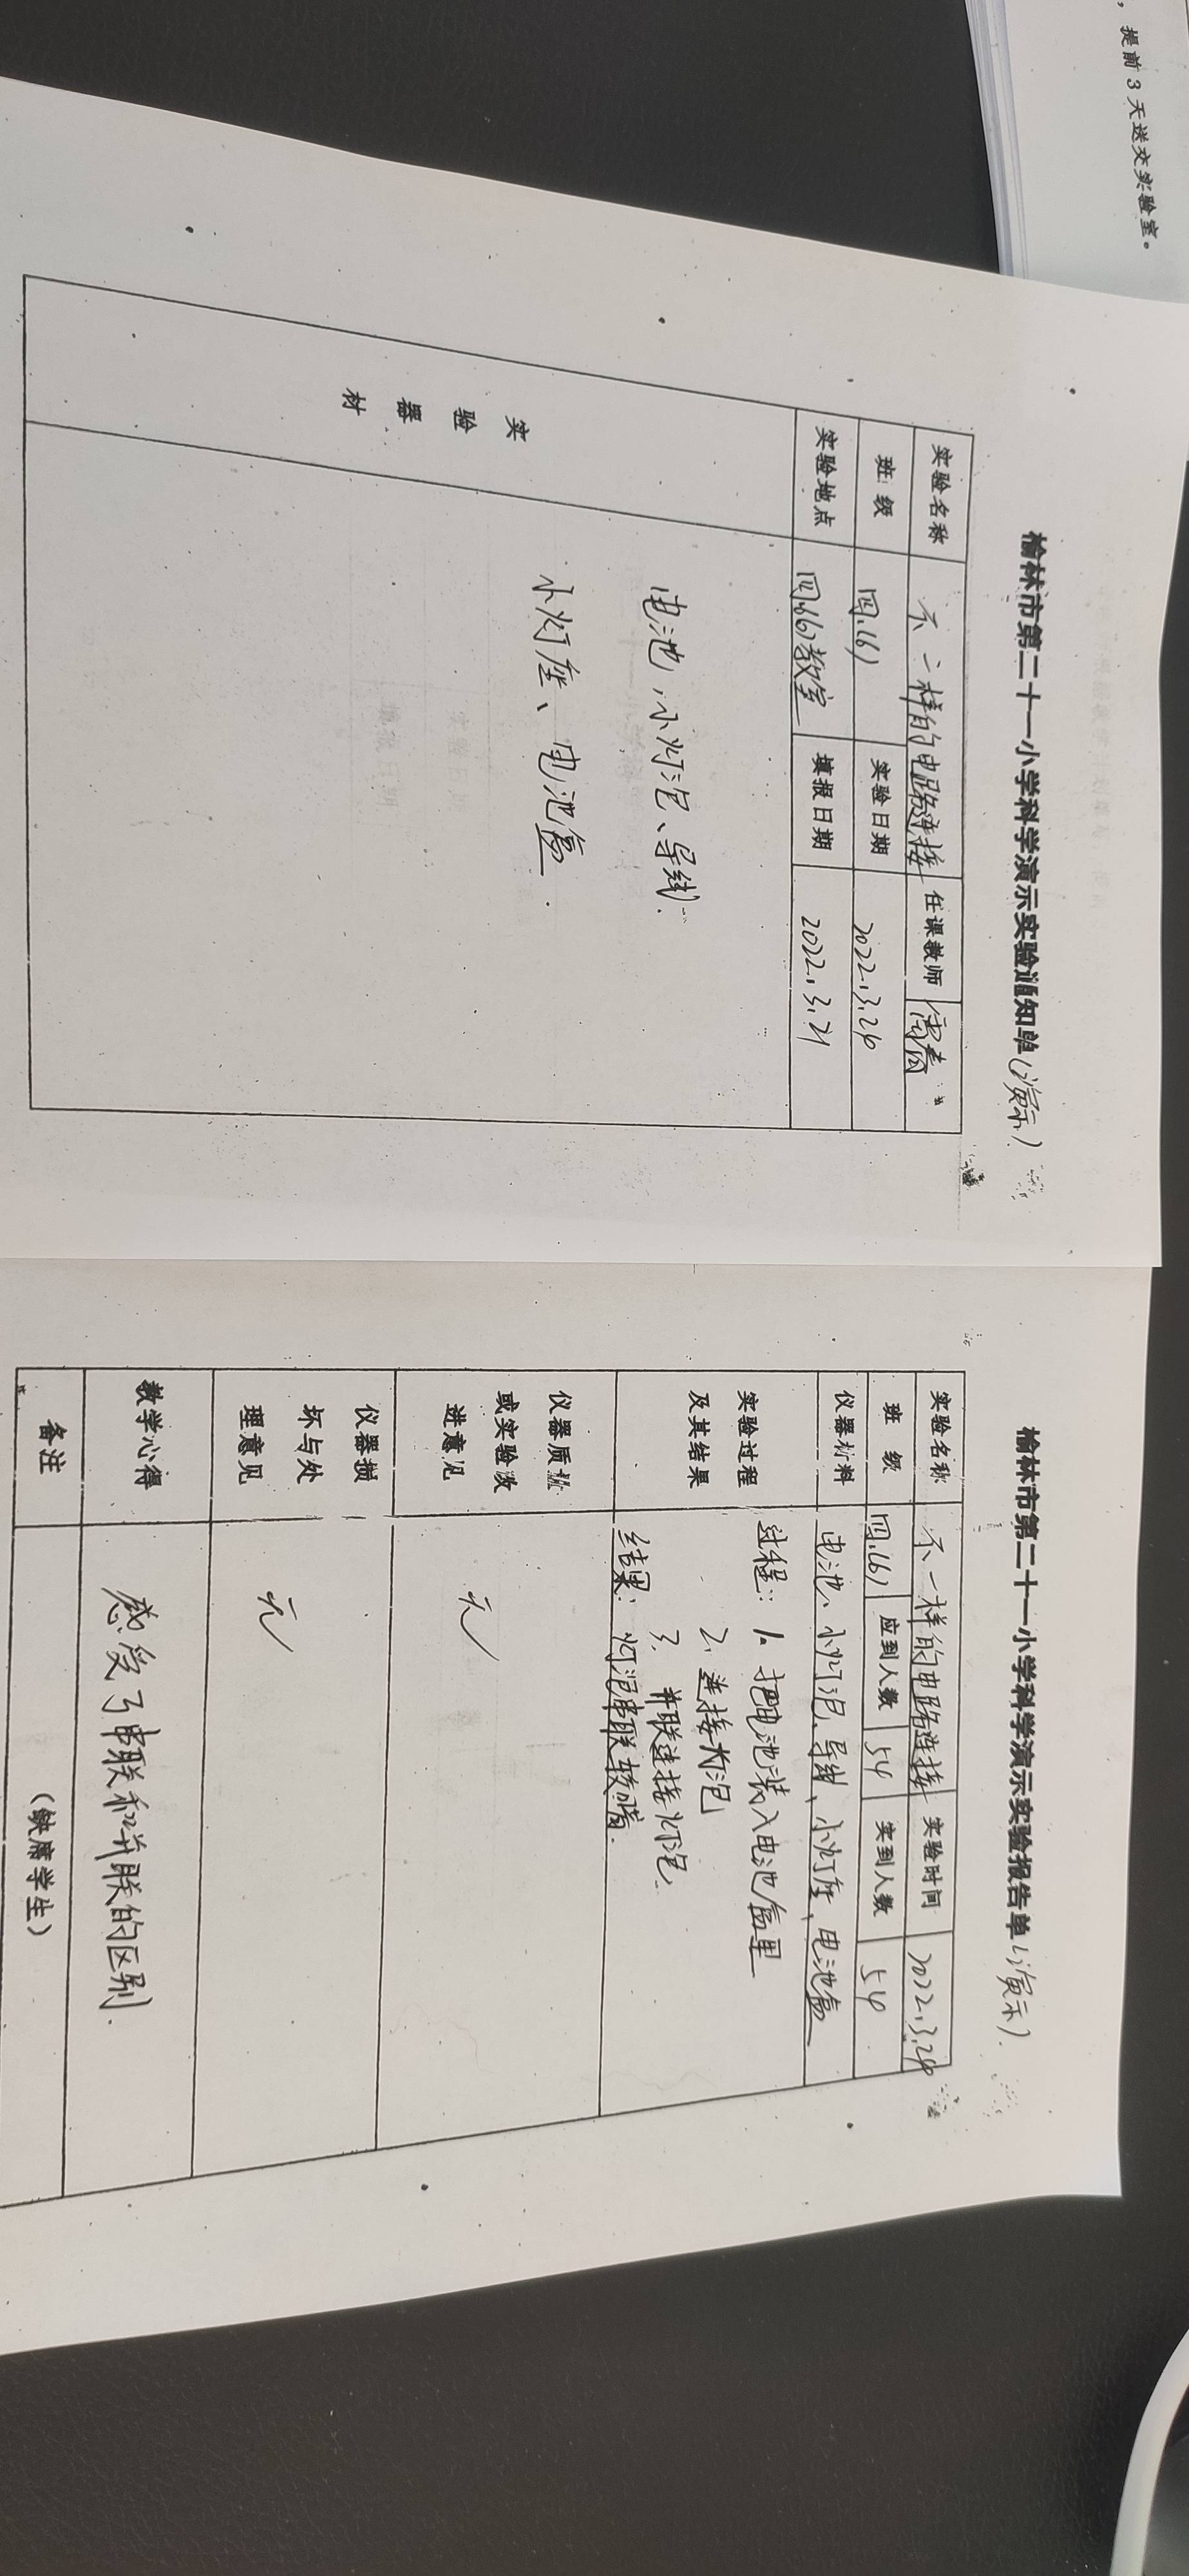 ，提前3天送交实验室。
榆林市第二十一小学科学演示实验通知单（演示）
实验名称 不一样的电路连接 任课教师
班级 四.(6) 实验日期 2022.3.24
实验地点 四.(6)教室 填报日期 2022.3.21
实验器材
电池、小灯泡、导线.
小灯座、电池盒.
榆林市第二十一小学科学演示实验报告单（演示）
实验名称 不一样的电路连接 实验时间 2022.3.24
班级 四.(6) 应到人数 54 实到人数 54
仪器材料 电池、小灯泡、导线、小灯座、电池盒
实验过程及其结果
过程：1.把电池装入电池盒里
2.连接灯泡
3.并联连接灯泡.
结果：灯泡串联较暗.
仪器质量或实验改进意见 无
仪器损坏与处理意见 无
教学心得 感受了串联和并联的区别.
备注 （缺席学生）